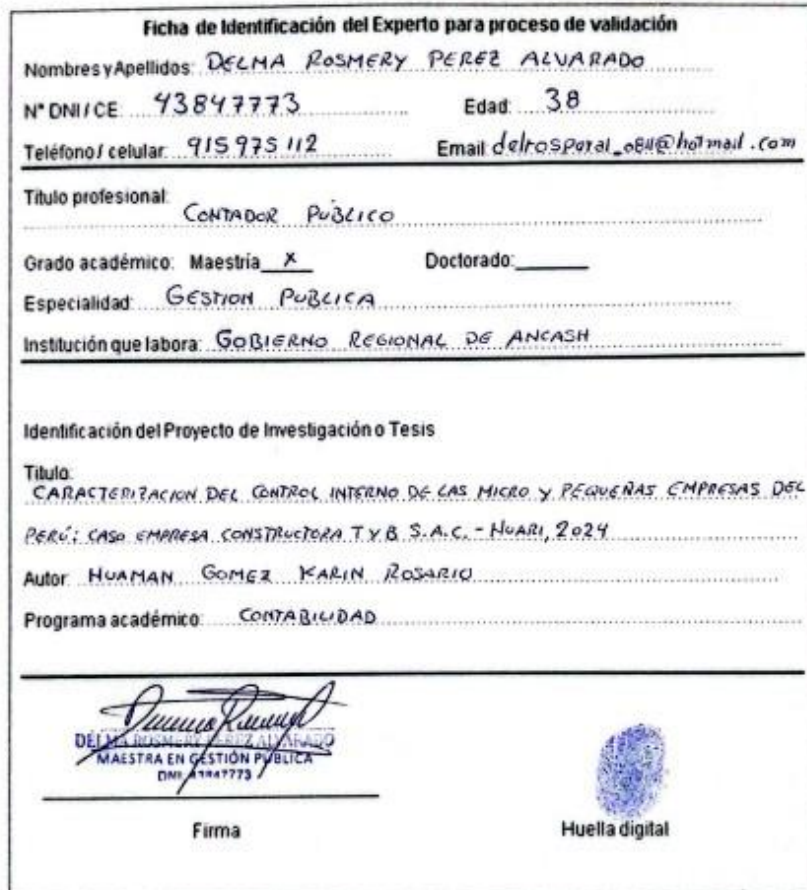 Ficha de Identificación del Experto para proceso de validación
Nombres y Apellidos: DELMA ROSMERY PEREZ ALVARADO
N° DNI / CE: 43847773 Edad: 38
Teléfono / celular: 915 975 112 Email:
Título profesional:
CONTADOR PUBLICO
Grado académico: Maestría x Doctorado:
Especialidad: GESTION PUBLICA
Institución que labora: GOBIERNO REGIONAL DE ANCASH
Identificación del Proyecto de Investigación o Tesis
Título:
CARACTERIZACION DEL CONTROL INTERNO DE LAS MICRO Y PEQUEÑAS EMPRESAS DEL
PERÚ: CASO EMPRESA CONSTRUCTORA T Y B S.A.C. - HUARI, 2024
Autor: HUAMAN GOMEZ KARIN ROSARIO
Programa académico: CONTABILIDAD
DELMA ROSMERY PEREZ ALVARADO
MAESTRA EN GESTIÓN PUBLICA
DNI. 43847773
Firma Huella digital